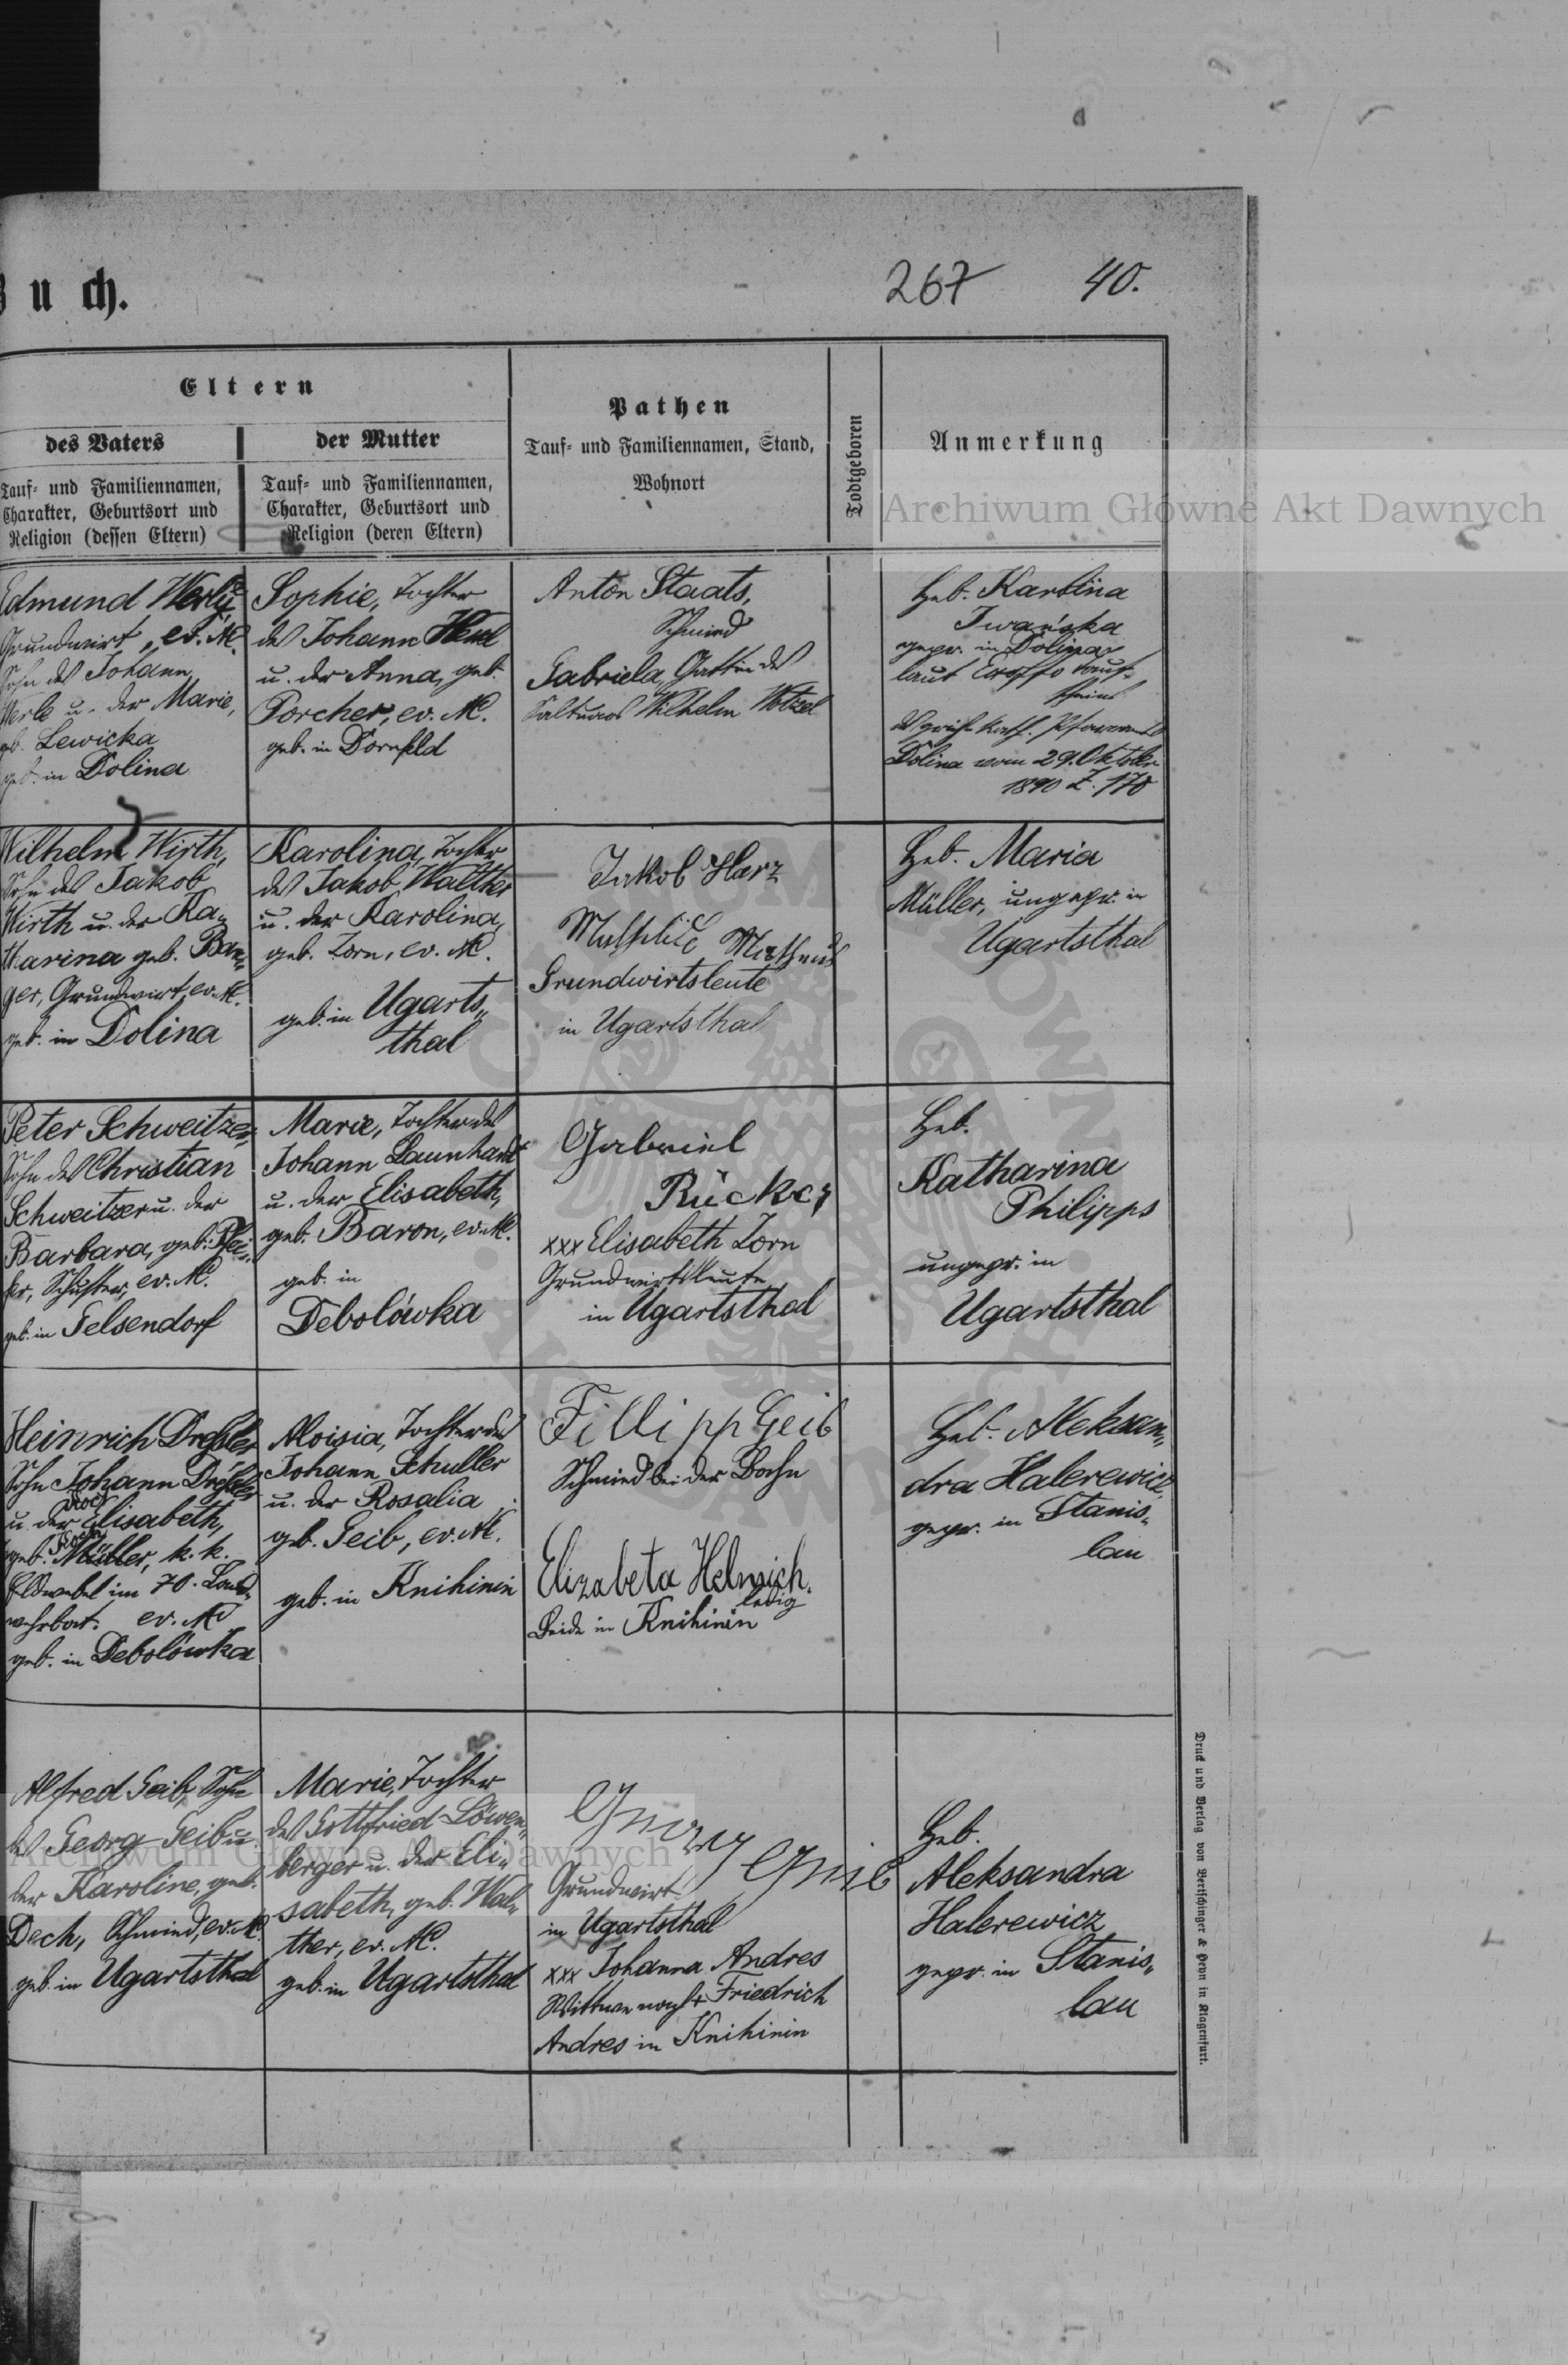 Buch.
267 40.
Eltern
des Vaters
Tauf- und Familiennamen,
Charakter, Geburtsort und
Religion (dessen Eltern)
der Mutter
Tauf- und Familiennamen,
Charakter, Geburtsort und
Religion (deren Eltern)
Pathen
Tauf- und Familiennamen, Stand,
Wohnort
Todtgeboren
Anmerkung
Archiwum Główne Akt Dawnych
Edmund
Grundwirt, ev. AC.
Sohn des Johann
Werle u. der Marie,
geb. Lewicka
geb. in Dolina
Sophie, Tochter
des Johann
u. der Anna, geb.
Porcher, ev. AC.
geb. in Dornfeld
Anton Staats,
Schmied
Gabriela, Gattin des
Wilhelm Wotzel
Heb. Karolina
Iwańska
gepr. in Dolina
laut Tauf-
scheines
des griech. kath. Pfarramts
Dolina vom 29. Oktober
1890 Z. 170
Wilhelm Wirth,
Sohn des Jakob
Wirth u. der Ka-
tharina geb. Ban-
ger, Grundwirt, ev. AC.
geb. in Dolina
Karolina, Tochter
des Jakob Walther
u. der Karolina,
geb. Zorn, ev. AC.
geb. in Ugarts-
thal
Jakob Harz
Grundwirtsleute
in Ugartsthal
Heb. Maria
Müller, ungepr. in
Ugartsthal
Peter Schweitzer,
Sohn des Christian
Schweitzer u. der
Barbara, geb.
Schuster, ev. AC.
geb. in Felsendorf
Marie, Tochter des
Johann Launhardt
u. der Elisabeth,
geb. Baron, ev. AC.
geb. in
Debolówka
Gabriel
Rücker
xxx Elisabeth Zorn
Grundwirtsleute
in Ugartsthal
Heb.
Katharina
Philipps
ungepr. in
Ugartsthal
Heinrich Dreßler
Sohn Johann Dreßler
u. der Elisabeth,
geb. Müller, k. k.
Feldwebel im 70. Land-
wehrbat. ev. AC
geb. in Debolówka
Aloisia, Tochter des
Johann Schuller
u. der Rosalia
geb. Geib, ev. AC.
geb. in Knihinin
Fillipp Geib
Schmied bei der Bahn
Elizabeta Helmsich
ledig
Beide in Knihinin
Heb. Aleksan-
dra Halerewicz,
gepr. in Stanis-
lau
Alfred Geib, Sohn
des Georg Geib u.
der Karoline, geb.
Dech, Schmied, ev. AC.
geb. in Ugartsthal
Marie, Tochter
des Gottfried Löwen-
berger u. der Eli-
sabeth, geb. Wal-
ther, ev. AC.
geb. in Ugartsthal
Georg Geib
Grundwirt
in Ugartsthal
xxx Johanna Andres
Wittwe nach + Friedrich
Andres in Knihinin
Heb.
Aleksandra
Halerewicz
gepr. in Stanis-
lau
Archiwum Główne Akt Dawnych
Druck und Verlag von Bertschinger & Heyn in Klagenfurt.